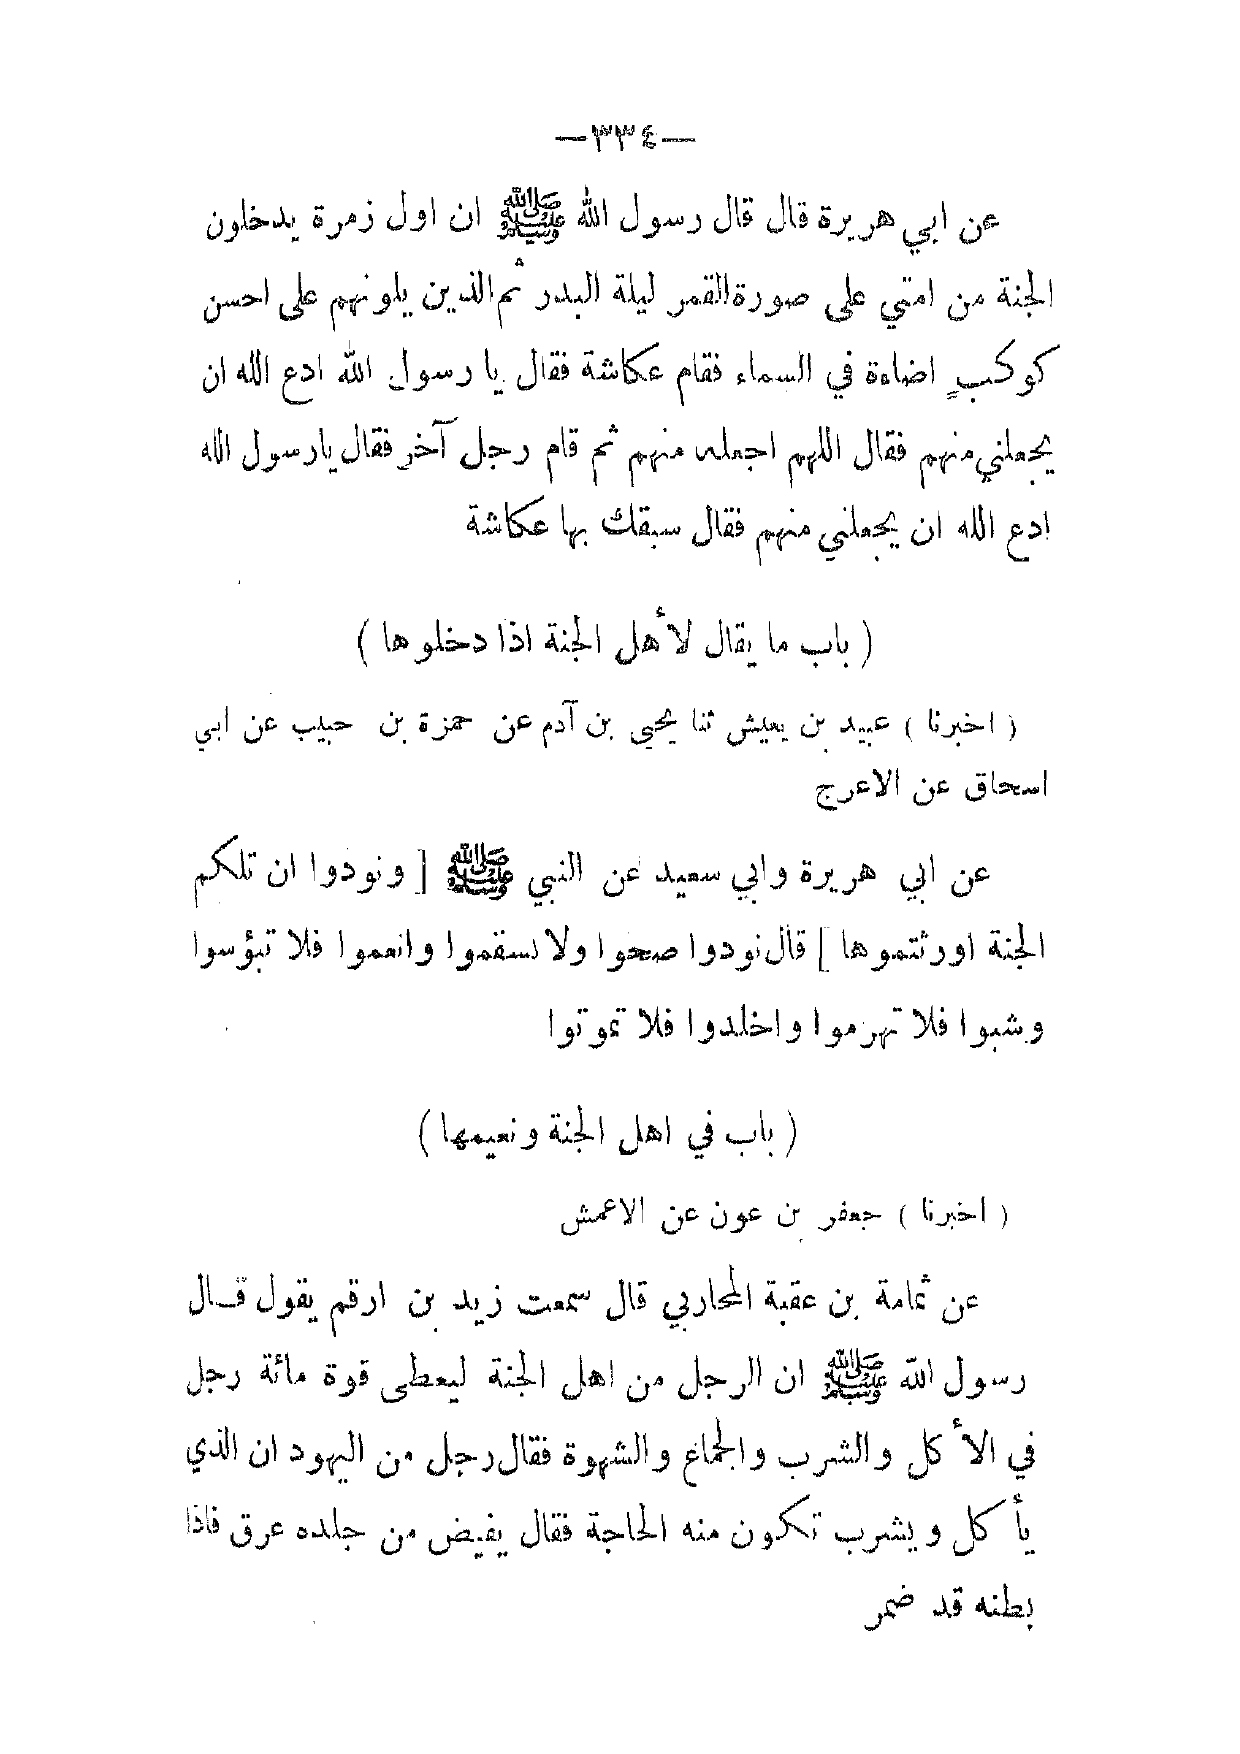 —٣٣٤—
عن ابي هريرة قال قال رسول الله ﷺ ان اول زمرة يدخلون
الجنة من امتي على صورةالقمر ليلة البدر ثم الذين يلونهم على احسن
كوكبٍ اضاءة في السماء فقام عكاشة فقال يا رسول الله ادع الله ان
يجعلني منهم فقال اللهم اجعله منهم ثم قام رجل آخر فقال يارسول الله
ادع الله ان يجعلني منهم فقال سبقك بها عكاشة
( باب ما يقال لأهل الجنة اذا دخلوها )
( اخبرنا ) عبيد بن يعيش ثنا يحيى بن آدم عن حمزة بن حبيب عن ابي
اسحاق عن الاعرج
عن ابي هريرة وابي سعيد عن النبي ﷺ [ ونودوا ان تلكم
الجنة اورثتموها ] قال نودوا صحوا ولا تسقموا وانعموا فلا تبؤسوا
وشبوا فلا تهرموا واخلدوا فلا تموتوا
( باب في اهل الجنة ونعيمها )
( اخبرنا ) جعفر بن عون عن الاعمش
عن ثمامة بن عقبة المحاربي قال سمعت زيد بن ارقم يقول قال
رسول الله ﷺ ان الرجل من اهل الجنة ليعطى قوة مائة رجل
في الأكل والشرب والجماع والشهوة فقال رجل من اليهود ان الذي
يأكل ويشرب تكون منه الحاجة فقال يفيض من جلده عرق فاذا
بطنه قد ضمر